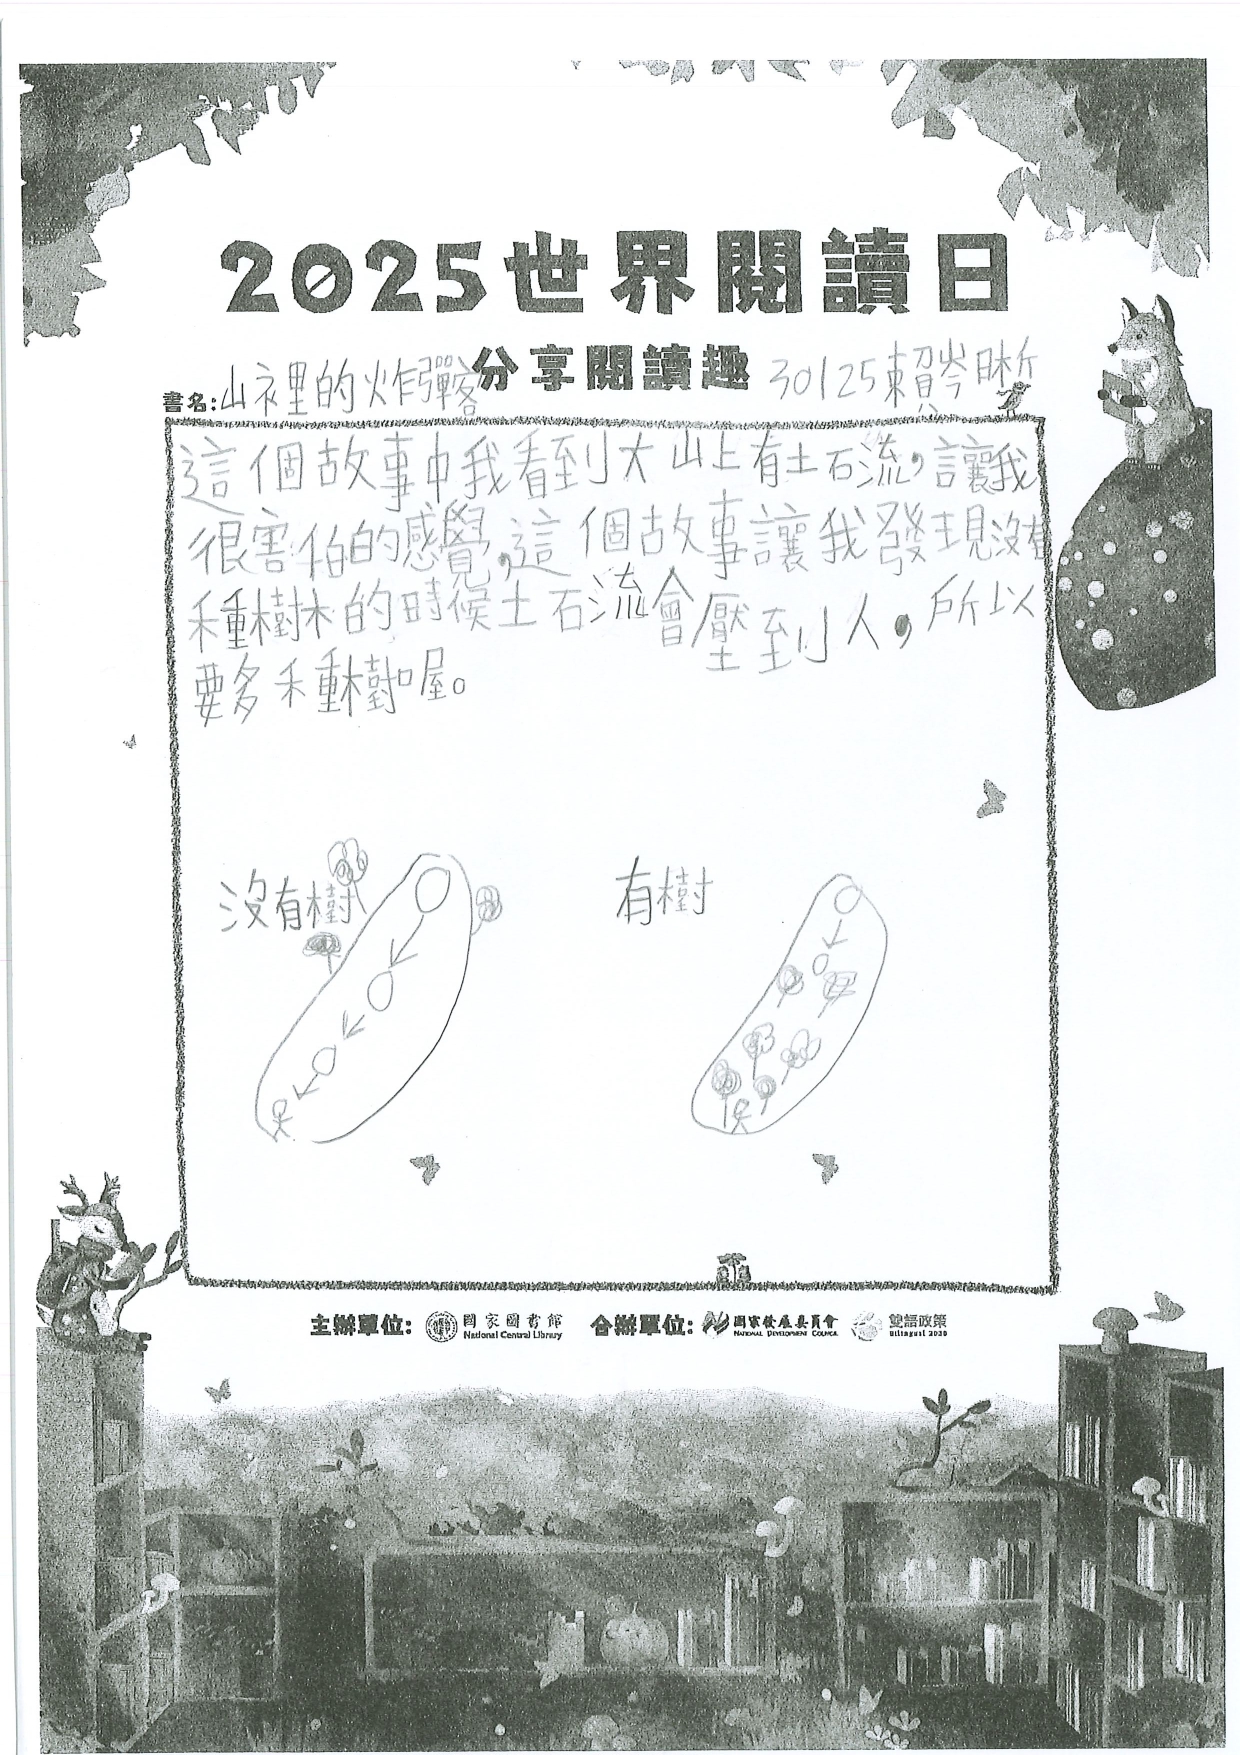 2025世界閱讀日
分享閱讀趣
書名:山裡的炸彈客 30125賴岑晰
這個故事中我看到大山上有土石流,讓我
很害怕的感覺,這個故事讓我發現沒有
種樹木的時候土石流會壓到小人,所以
要多種樹喔。
沒有樹 有樹
主辦單位: 國家圖書館 National Central Library 合辦單位: 國家發展委員會 NATIONAL DEVELOPMENT COUNCIL 雙語政策 Bilingual 2030